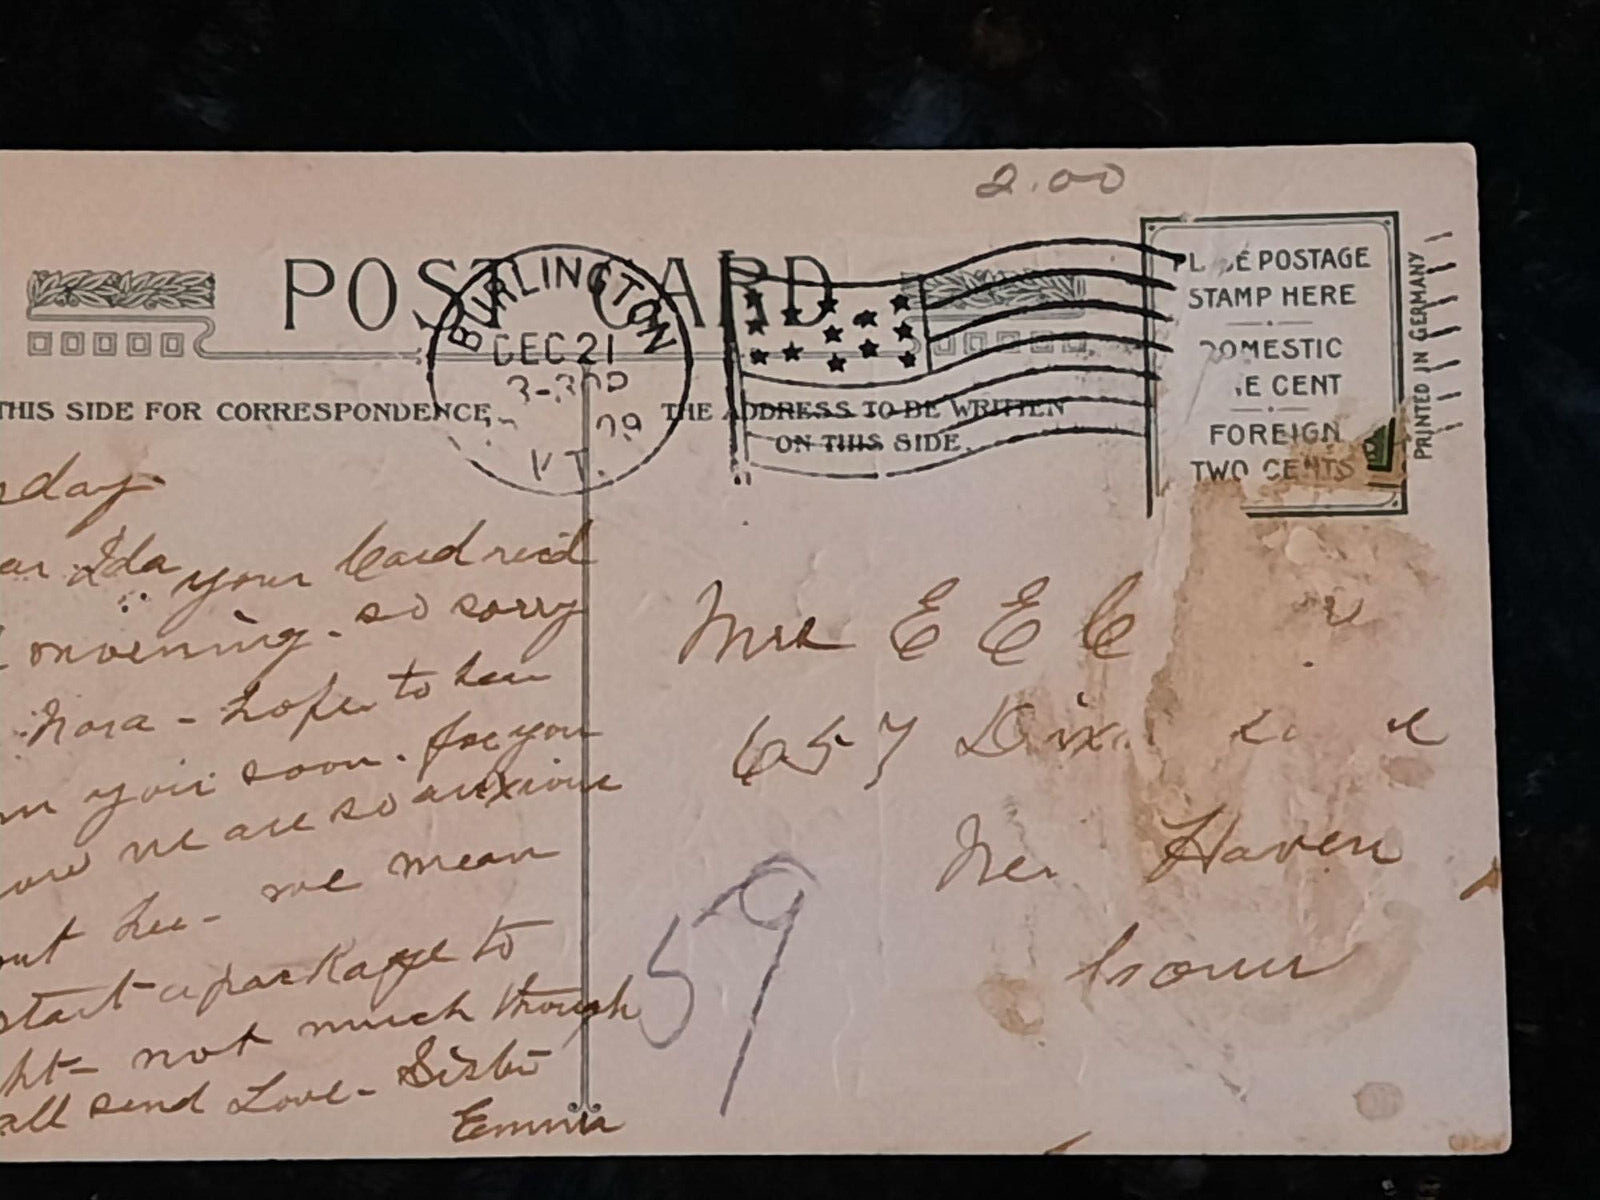 2.00
POST CARD
BURLINGTON
DEC 21
3-30P
09
VT.
PLACE POSTAGE
STAMP HERE
DOMESTIC
ONE CENT
FOREIGN
TWO CENTS
PRINTED IN GERMANY
THIS SIDE FOR CORRESPONDENCE,
THE ADDRESS TO BE WRITTEN
ON THIS SIDE.
day
Ida your Card rec'd
morning. so sorry
Nora - hope to hear
you soon. for you
we are so anxious
her - we mean
start a package to
not much though
all send Love - Sister
Emma
Mrs E E C
657 Dix
New Haven
Conn
59